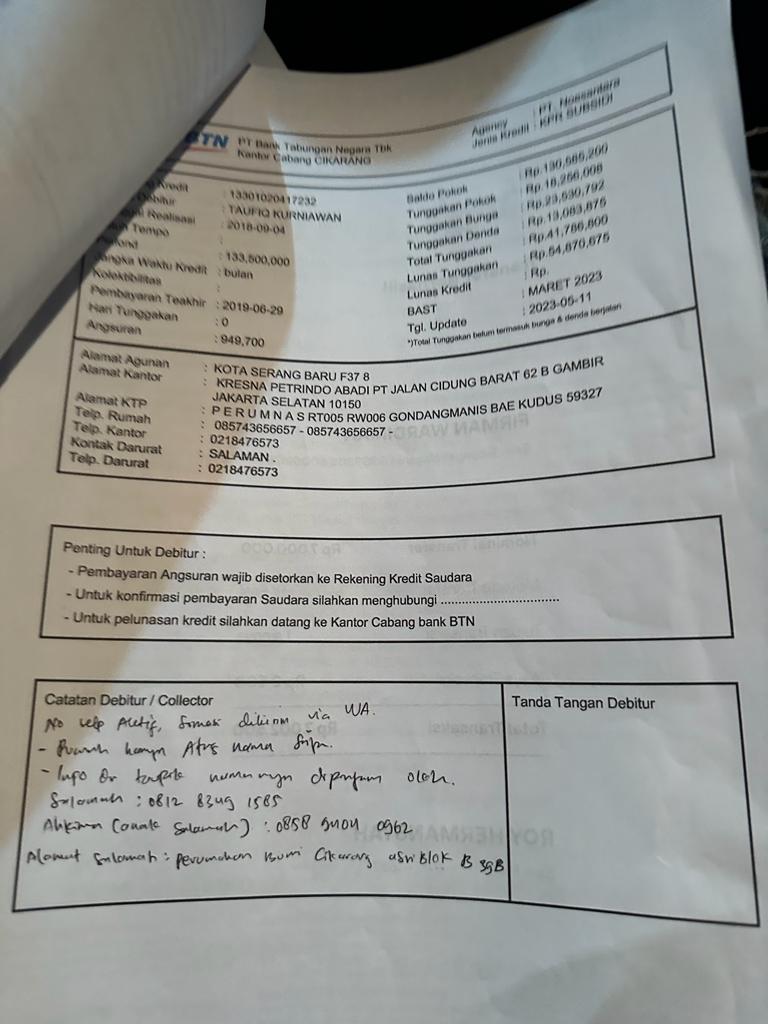 BTN PT Bank Tabungan Negara Tbk
Kantor Cabang CIKARANG
Agency : PT. Nossantara
Jenis Kredit : KPR SUBSIDI
Kredit : 13301020417232
Debitur : TAUFIQ KURNIAWAN
Realisasi : 2018-09-04
Tempo :
: 133,500,000
Jangka Waktu Kredit : bulan
Kolektibilitas :
Pembayaran Teakhir : 2019-06-29
Hari Tunggakan : 0
Angsuran : 949,700
Saldo Pokok : Rp.130,565,200
Tunggakan Pokok : Rp.18,256,008
Tunggakan Bunga : Rp.23,530,792
Tunggakan Denda : Rp.13,083,875
Total Tunggakan : Rp.41,786,800
Lunas Tunggakan : Rp.54,870,675
Lunas Kredit : Rp.
BAST : MARET 2023
Tgl. Update : 2023-05-11
*)Total Tunggakan belum termasuk bunga & denda berjalan
Alamat Agunan : KOTA SERANG BARU F37 8
Alamat Kantor : KRESNA PETRINDO ABADI PT JALAN CIDUNG BARAT 62 B GAMBIR
JAKARTA SELATAN 10150
Alamat KTP : P E R U M N A S RT005 RW006 GONDANGMANIS BAE KUDUS 59327
Telp. Rumah : 085743656657 - 085743656657 -
Telp. Kantor : 0218476573
Kontak Darurat : SALAMAN .
Telp. Darurat : 0218476573
Penting Untuk Debitur :
- Pembayaran Angsuran wajib disetorkan ke Rekening Kredit Saudara
- Untuk konfirmasi pembayaran Saudara silahkan menghubungi ..................................
- Untuk pelunasan kredit silahkan datang ke Kantor Cabang bank BTN
Catatan Debitur / Collector
Tanda Tangan Debitur
No telp Aktif, Somasi dikirim via WA.
- Rumah hanya Atas nama
- Info Dr namanya dipinjam oleh.
Salamah : 0812 8349 1585
(anak Salamah) : 0858 9404 0962
Alamat Salamah : perumahan Bumi Cikarang asri Blok B 39B